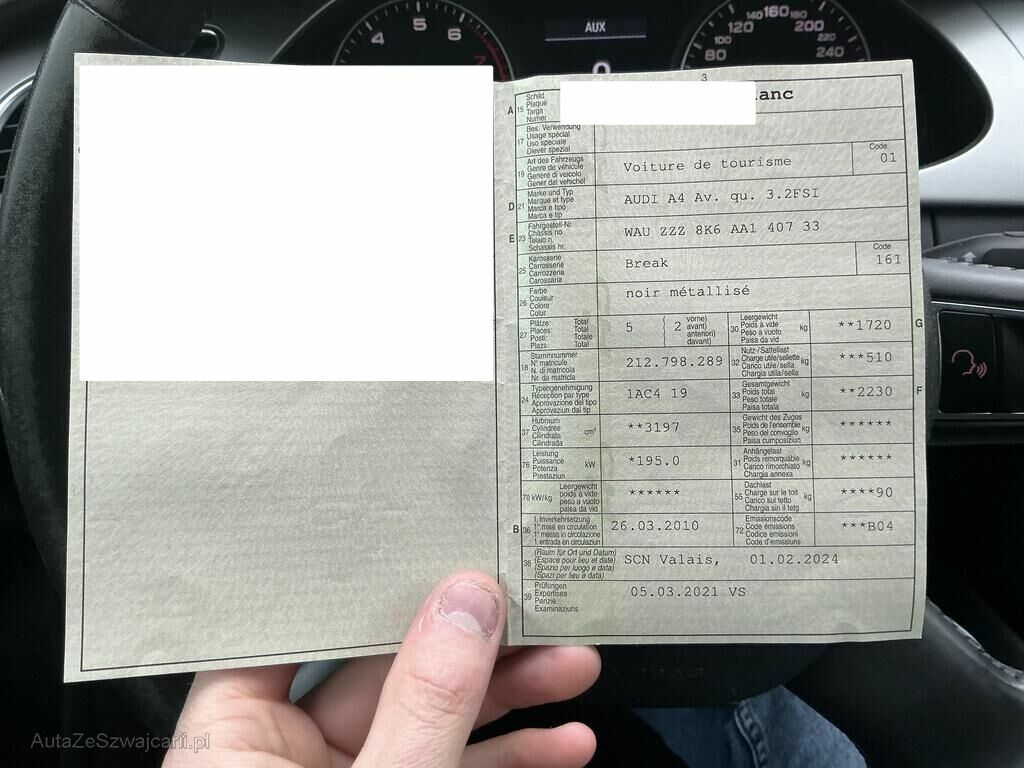 4 5 6 7
AUX
80 100 120 140 160 180 200 220 240
0
3
A 15 Schild
Plaque
Targa
Numer
anc
17 Bes. Verwendung
Usage spécial
Uso speciale
Diever spezial
19 Art des Fahrzeugs
Genre de véhicule
Genere di veicolo
Gener dal vehichel
Voiture de tourisme
Code
01
D 21 Marke und Typ
Marque et type
Marca e tipo
Marca e tip
AUDI A4 Av. qu. 3.2FSI
E 23 Fahrgestell-Nr.
Châssis no
Telaio n.
Schassis nr.
WAU ZZZ 8K6 AA1 407 33
25 Karosserie
Carrosserie
Carrozzeria
Carossaria
Break
Code
161
26 Farbe
Couleur
Colore
Colur
noir métallisé
27 Plätze: Total
Places: Total
Posti: Totale
Plazs: Total
5 ( 2 vorne)
avant)
anteriori)
davant)
30 Leergewicht
Poids à vide
Peso a vuoto
Paisa da vid
kg
**1720
G
18 Stammnummer
N° matricule
N. di matricola
Nr. da matricla
212.798.289
32 Nutz-/Sattellast
Charge utile/sellette
Carico utile/sella
Chargia utila/sella
kg
***510
24 Typengenehmigung
Réception par type
Approvazione del tipo
Approvaziun dal tip
1AC4 19
33 Gesamtgewicht
Poids total
Peso totale
Paisa totala
kg
**2230
F
37 Hubraum
Cylindrée
Cilindrata
Cilindrada
cm³
**3197
35 Gewicht des Zuges
Poids de l'ensemble
Peso del convoglio
Paisa cumposiziun
kg
******
76 Leistung
Puissance
Potenza
Prestaziun
kW
*195.0
31 Anhängelast
Poids remorquable
Carico rimorchiato
Chargia annexa
kg
******
78 kW/kg Leergewicht
poids à vide
peso a vuoto
paisa da vid
******
55 Dachlast
Charge sur le toit
Carico sul tetto
Chargia sin il tetg
kg
****90
B 36 1. Inverkehrsetzung
1re mise en circulation
1a messa in circolazione
1. entrada en circulaziun
26.03.2010
72 Emissionscode
Code émissions
Codice emissioni
Code d'emissiuns
***B04
38 (Raum für Ort und Datum)
(Espace pour lieu et date)
(Spazio per luogo e data)
(Spazi per lieu e data)
SCN Valais, 01.02.2024
39 Prüfungen
Expertises
Perizie
Examinaziuns
05.03.2021 VS
AutaZeSzwajcarii.pl